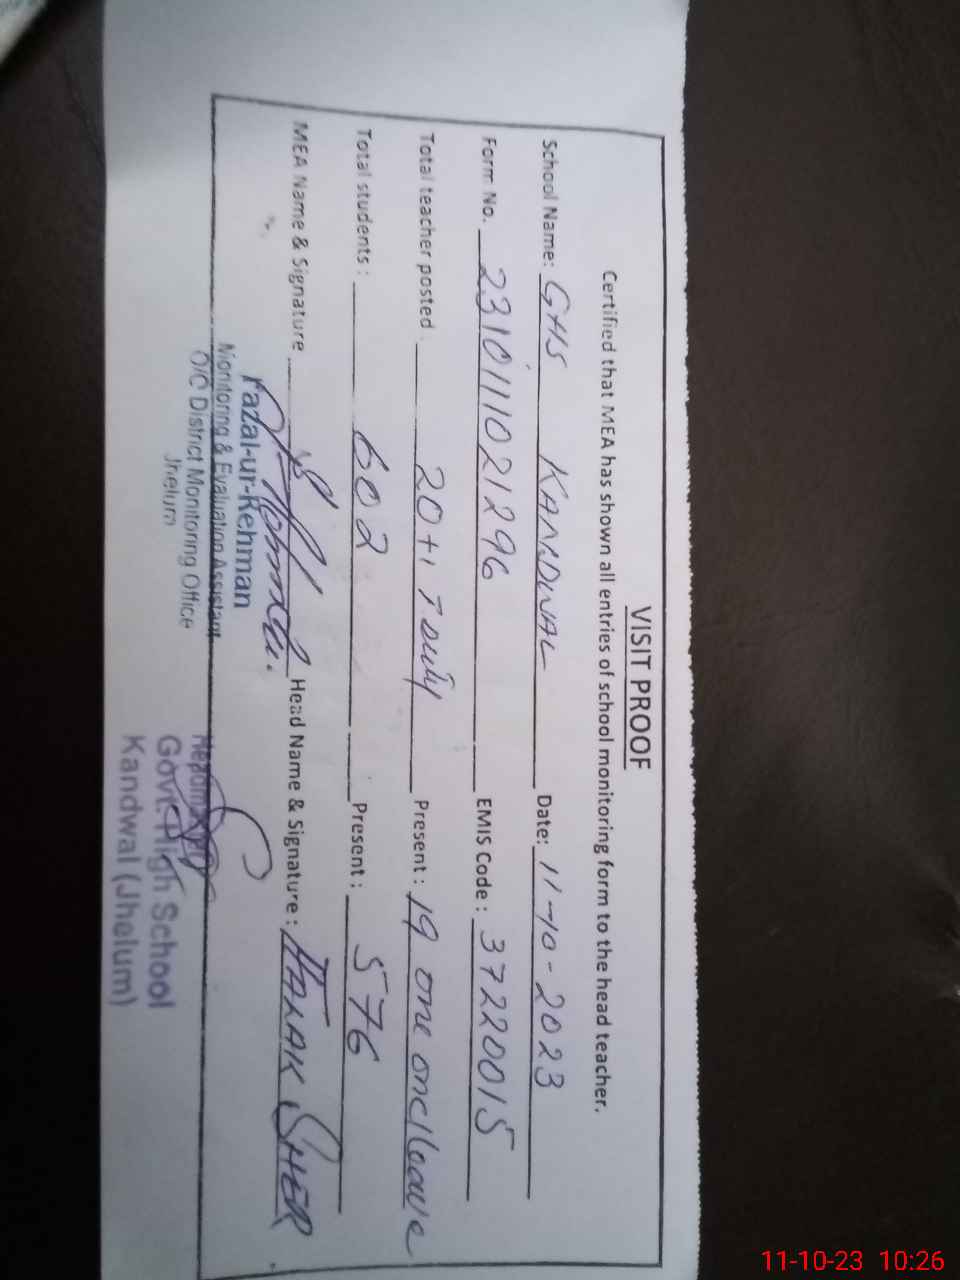 VISIT PROOF
Certified that MEA has shown all entries of school monitoring form to the head teacher.
School Name: GHS KANDWAL Date: 11-10-2023
Form No. 231011021296 EMIS Code: 37220015
Total teacher posted 20+1 T duty Present: 19 one on c/leave
Total students: 602 Present: 576
MEA Name & Signature Head Name & Signature: SHER
Fazal-ur-Rehman
Monitoring & Evaluation Assistant
O/C District Monitoring Office
Jhelum
Govt. High School
Kandwal (Jhelum)
11-10-23 10:26